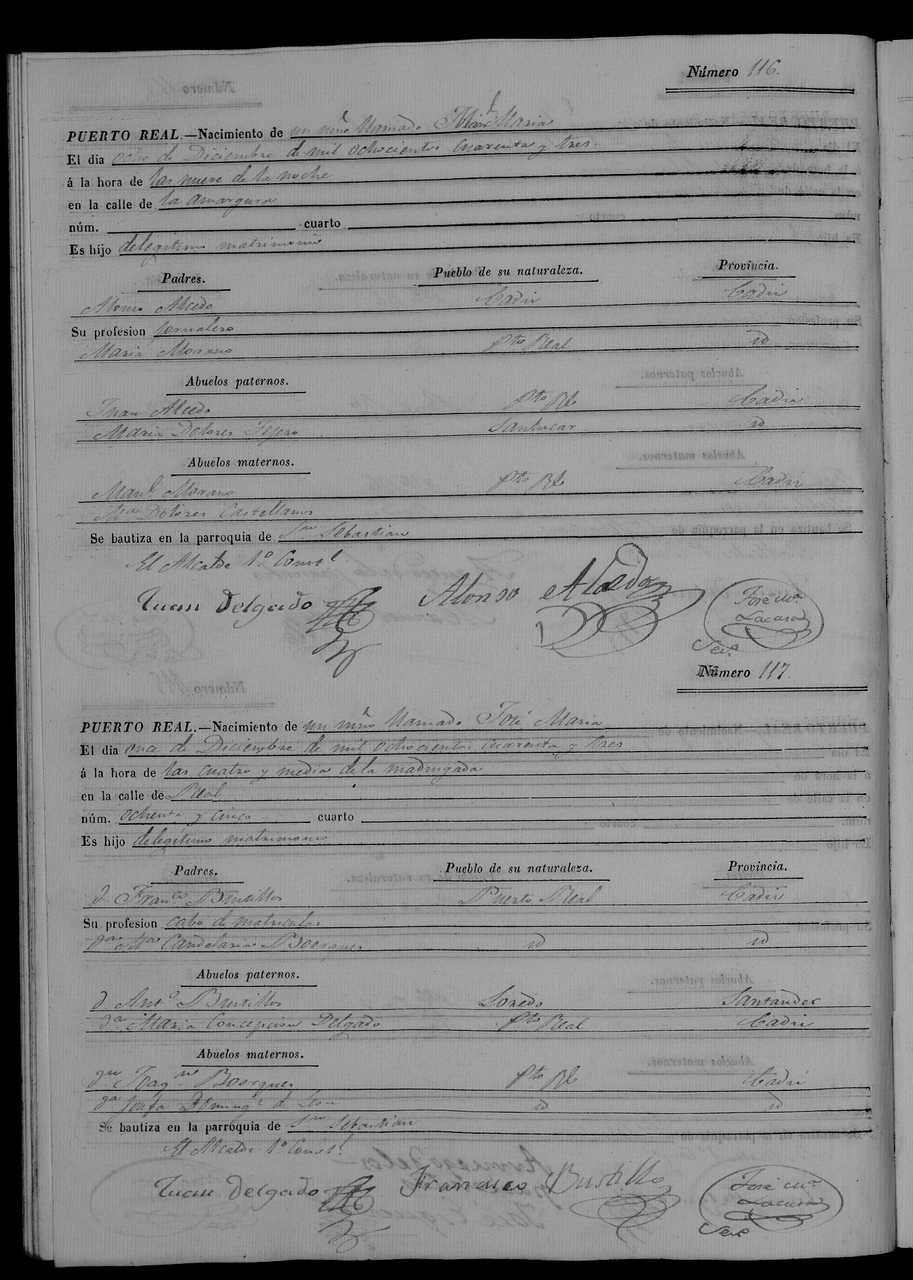 Número 116.
PUERTO REAL.—Nacimiento de un niño llamado María
El día ocho de Diciembre de mil ochocientos cuarenta y tres.
á la hora de las nueve de la noche
en la calle de la amargura
núm. cuarto
Es hijo de legitimo matrimonio
Padres. Pueblo de su naturaleza. Provincia.
Alonso Alcedo Cadiz Cadiz
Su profesion Jornalero
Maria Moreno Pto Real id
Abuelos paternos.
Juan Alcedo Pto Rl Cadiz
Maria Dolores Sanlucar id
Abuelos maternos.
Manl Moreno Pto Rl Cadiz
Ma Dolores Castellanos
Se bautiza en la parroquia de Sn Sebastian
El Alcalde 1º Consl
Juan Delgado Alonso Alcedo José Ma
Lacasa
Seco
Número 117.
PUERTO REAL.—Nacimiento de un niño llamado José María
El día once de Diciembre de mil ochocientos cuarenta y tres
á la hora de las cuatro y media de la madrugada
en la calle de Real
núm. ochenta y cinco cuarto
Es hijo de legitimo matrimonio
Padres. Pueblo de su naturaleza. Provincia.
d Franco Bustillos Puerto Real Cadiz
Su profesion cabo de matriculas
da Ma Candelaria Boorques id id
Abuelos paternos.
d Anto Bustillos Loredo Santander
da Maria Concepcion Delgado Pto Real Cadiz
Abuelos maternos.
Boorques Pto Rl Cadiz
da Josefa Doming de Leon id id
Se bautiza en la parroquia de Sn Sebastian
El Alcalde 1º Consl
Juan Delgado Francisco Bustillo José Ma
Lacasa
Seco